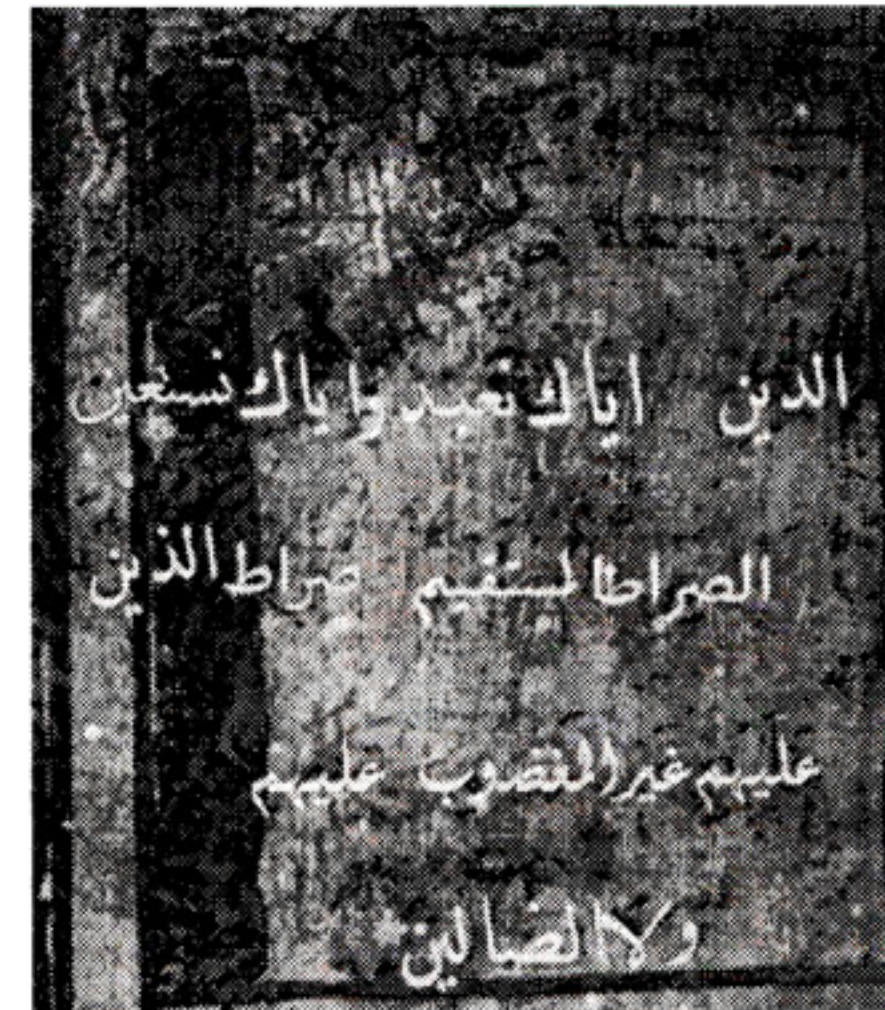 الدين اياك نعبد واياك نستعين
الصراط المستقيم صراط الذين
عليهم غير المغضوب عليهم
ولا الضالين